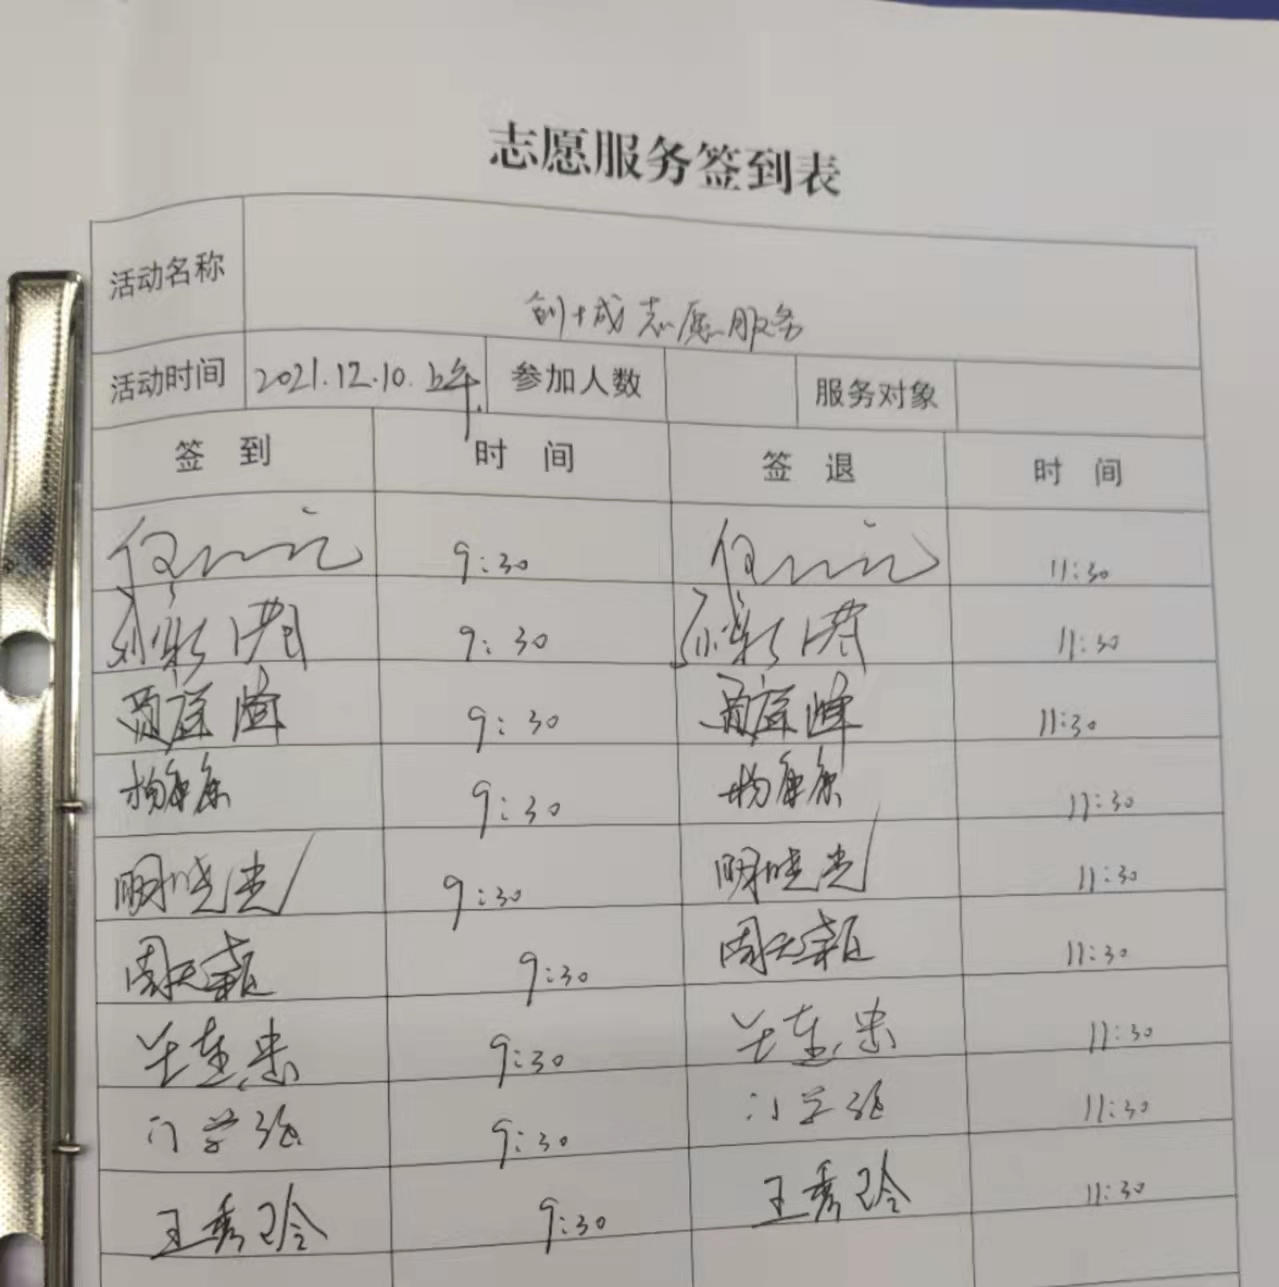 志愿服务签到表
活动名称 创城志愿服务
活动时间 2021.12.10.上午. 参加人数 服务对象
签到 时间 签退 时间
9:30 11:30
9:30 11:30
9:30 11:30
杨康康 9:30 杨康康 11:30
明晓忠 9:30 明晓忠 11:30
周天颖 9:30 周天颖 11:30
9:30 11:30
门学强 9:30 门学强 11:30
王秀玲 9:30 王秀玲 11:30